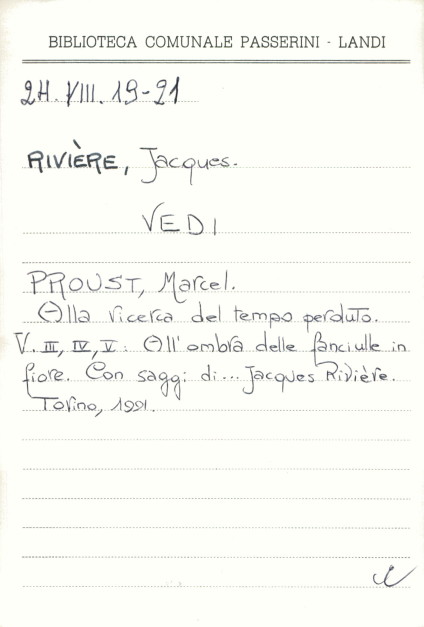 BIBLIOTECA COMUNALE PASSERINI - LANDI
2H. VIII. 19-21
RIVIÈRE, Jacques.
VEDI
PROUST, Marcel.
Alla ricerca del tempo perduto.
V. III, IV, V: All'ombra delle fanciulle in
fiore. Con saggi di... Jacques Rivière.
Torino, 1991.